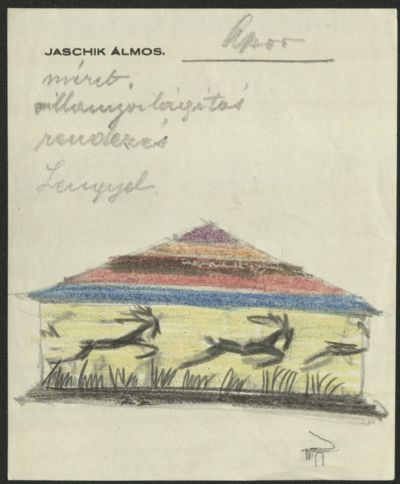 Apor
JASCHIK ÁLMOS.
méret,
villanyvilágítás
rendezés
Lengyel.